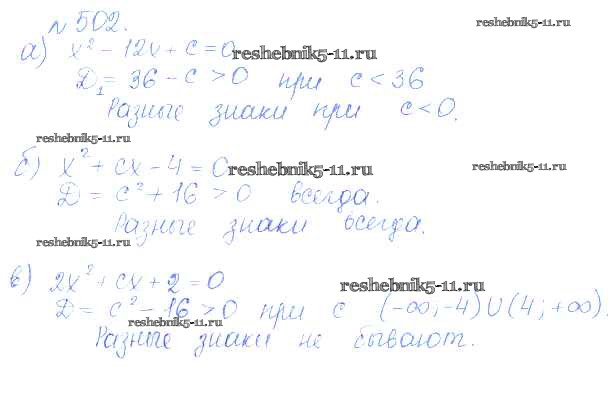 № 502.
reshebnik5-11.ru
а) x² - 12x + c = 0
reshebnik5-11.ru
D₁ = 36 - c > 0 при c < 36
Разные знаки при c < 0.
reshebnik5-11.ru
б) x² + cx - 4 = 0
reshebnik5-11.ru
reshebnik5-11.ru
D = c² + 16 > 0 всегда.
Разные знаки всегда.
reshebnik5-11.ru
в) 2x² + cx + 2 = 0
reshebnik5-11.ru
D = c² - 16 > 0 при c (-∞; -4) U (4; +∞).
reshebnik5-11.ru
Разные знаки не бывают.